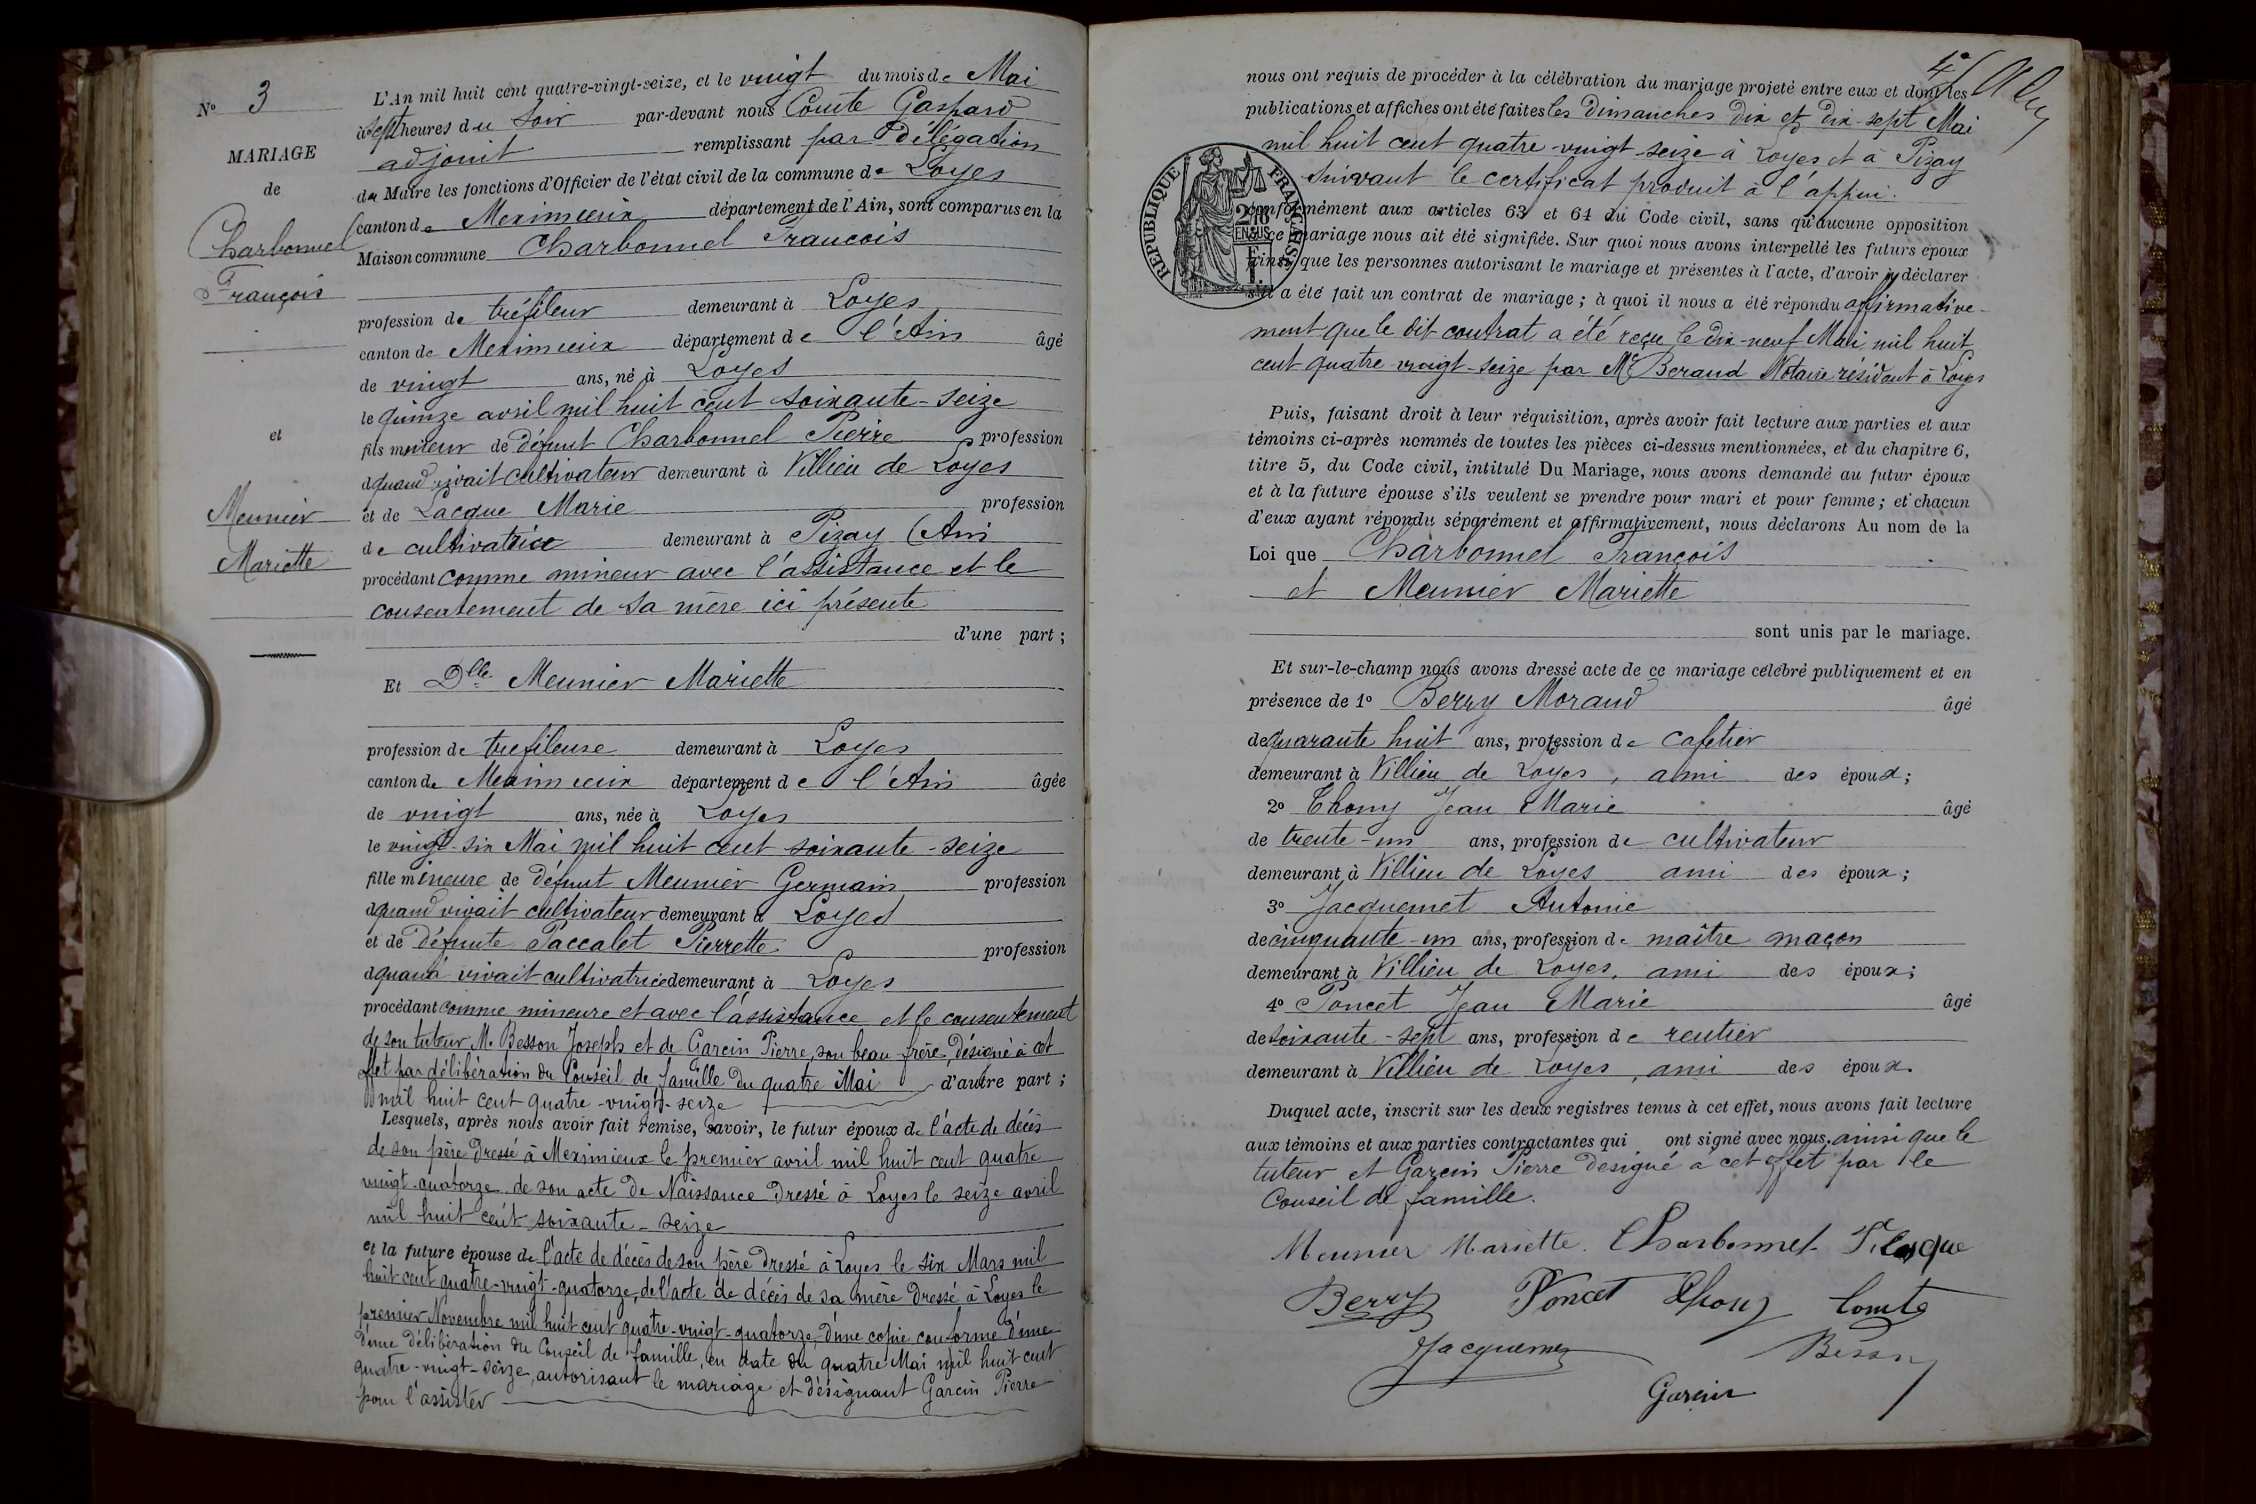 N° 3
MARIAGE
de
Charbonnel
François
et
Meunier
Mariette
L'An mil huit cent quatre-vingt-seize, et le vingt du mois de Mai
à sept heures du soir par-devant nous Comte Gaspard
adjoint remplissant par délégation
du Maire les fonctions d'Officier de l'état civil de la commune de Loyes
canton de Meximieux département de l'Ain, sont comparus en la
Maison commune Charbonnel François
profession de tréfileur demeurant à Loyes
canton de Meximieux département de l'Ain âgé
de vingt ans, né à Loyes
le quinze avril mil huit cent soixante-seize
fils mineur de défunt Charbonnel Pierre profession
d quand vivait cultivateur demeurant à Villieu de Loyes
et de Lacque Marie profession
de cultivatrice demeurant à Pizay (Ain
procédant comme mineur avec l'assistance et le
consentement de sa mère ici présente
d'une part;
Et Dlle Meunier Mariette
profession de tréfileuse demeurant à Loyes
canton de Meximieux département de l'Ain âgée
de vingt ans, née à Loyes
le vingt-six Mai mil huit cent soixante-seize
fille mineure de défunt Meunier Germain profession
d quand vivait cultivateur demeurant à Loyes
et de défunte Paccalet Pierrette profession
d quand vivait cultivatrice demeurant à Loyes
procédant comme mineure et avec l'assistance et le consentement
de son tuteur M. Besson Joseph et de Garcin Pierre, son beau frère, désigné à cet
effet par délibération du Conseil de famille du quatre Mai d'autre part;
mil huit cent quatre-vingt-seize
Lesquels, après nous avoir fait remise, savoir, le futur époux de l'acte de décès
de son père dressé à Meximieux le premier avril mil huit cent quatre
vingt-quatorze de son acte de Naissance dressé à Loyes le seize avril
mil huit cent soixante-seize
et la future épouse de l'acte de décès de son père dressé à Loyes le six Mars mil
huit cent quatre-vingt-quatorze, de l'acte de décès de sa mère dressé à Loyes le
premier Novembre mil huit cent quatre-vingt-quatorze, d'une copie conforme d'une
d'une délibération du Conseil de famille, en date du quatre Mai mil huit cent
quatre-vingt-seize, autorisant le mariage et désignant Garcin Pierre
pour l'assister
4e
nous ont requis de procéder à la célébration du mariage projeté entre eux et dont les
publications et affiches ont été faites les dimanches dix et dix-sept Mai
mil huit cent quatre-vingt seize à Loyes et à Pizay
suivant le certificat produit à l'appui.
RÉPUBLIQUE FRANÇAISE
conformément aux articles 63 et 64 du Code civil, sans qu'aucune opposition
à ce mariage nous ait été signifiée. Sur quoi nous avons interpellé les futurs époux
ainsi que les personnes autorisant le mariage et présentes à l'acte, d'avoir à déclarer
s'il a été fait un contrat de mariage; à quoi il nous a été répondu affirmative-
ment que le dit contrat a été reçu le dix-neuf Mai mil huit
cent quatre-vingt-seize par Me Beraud Notaire résidant à Loyes
Puis, faisant droit à leur réquisition, après avoir fait lecture aux parties et aux
témoins ci-après nommés de toutes les pièces ci-dessus mentionnées, et du chapitre 6,
titre 5, du Code civil, intitulé Du Mariage, nous avons demandé au futur époux
et à la future épouse s'ils veulent se prendre pour mari et pour femme; et chacun
d'eux ayant répondu séparément et affirmativement, nous déclarons Au nom de la
Loi que Charbonnel François
et Meunier Mariette
sont unis par le mariage.
Et sur-le-champ nous avons dressé acte de ce mariage célébré publiquement et en
présence de 1° Berry Morand âgé
de quarante huit ans, profession de cafetier
demeurant à Villieu de Loyes, ami des époux;
2° Thomy Jean Marie âgé
de trente-un ans, profession de cultivateur
demeurant à Villieu de Loyes ami des époux;
3° Jacquemet Antoine
de cinquante-un ans, profession de maître maçon
demeurant à Villieu de Loyes, ami des époux;
4° Poncet Jean Marie âgé
de soixante-sept ans, profession de rentier
demeurant à Villieu de Loyes, ami des époux.
Duquel acte, inscrit sur les deux registres tenus à cet effet, nous avons fait lecture
aux témoins et aux parties contractantes qui ont signé avec nous, ainsi que le
tuteur et Garcin Pierre désigné à cet effet par le
Conseil de famille.
Meunier Mariette. Charbonnel
Berry Poncet Comte
Jacquemet Besson
Garcin